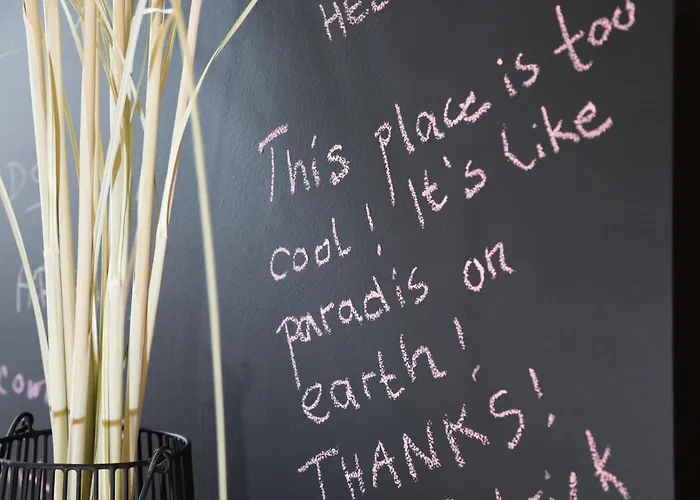 This place is too
cool! It's like
paradis on
earth!
THANKS!